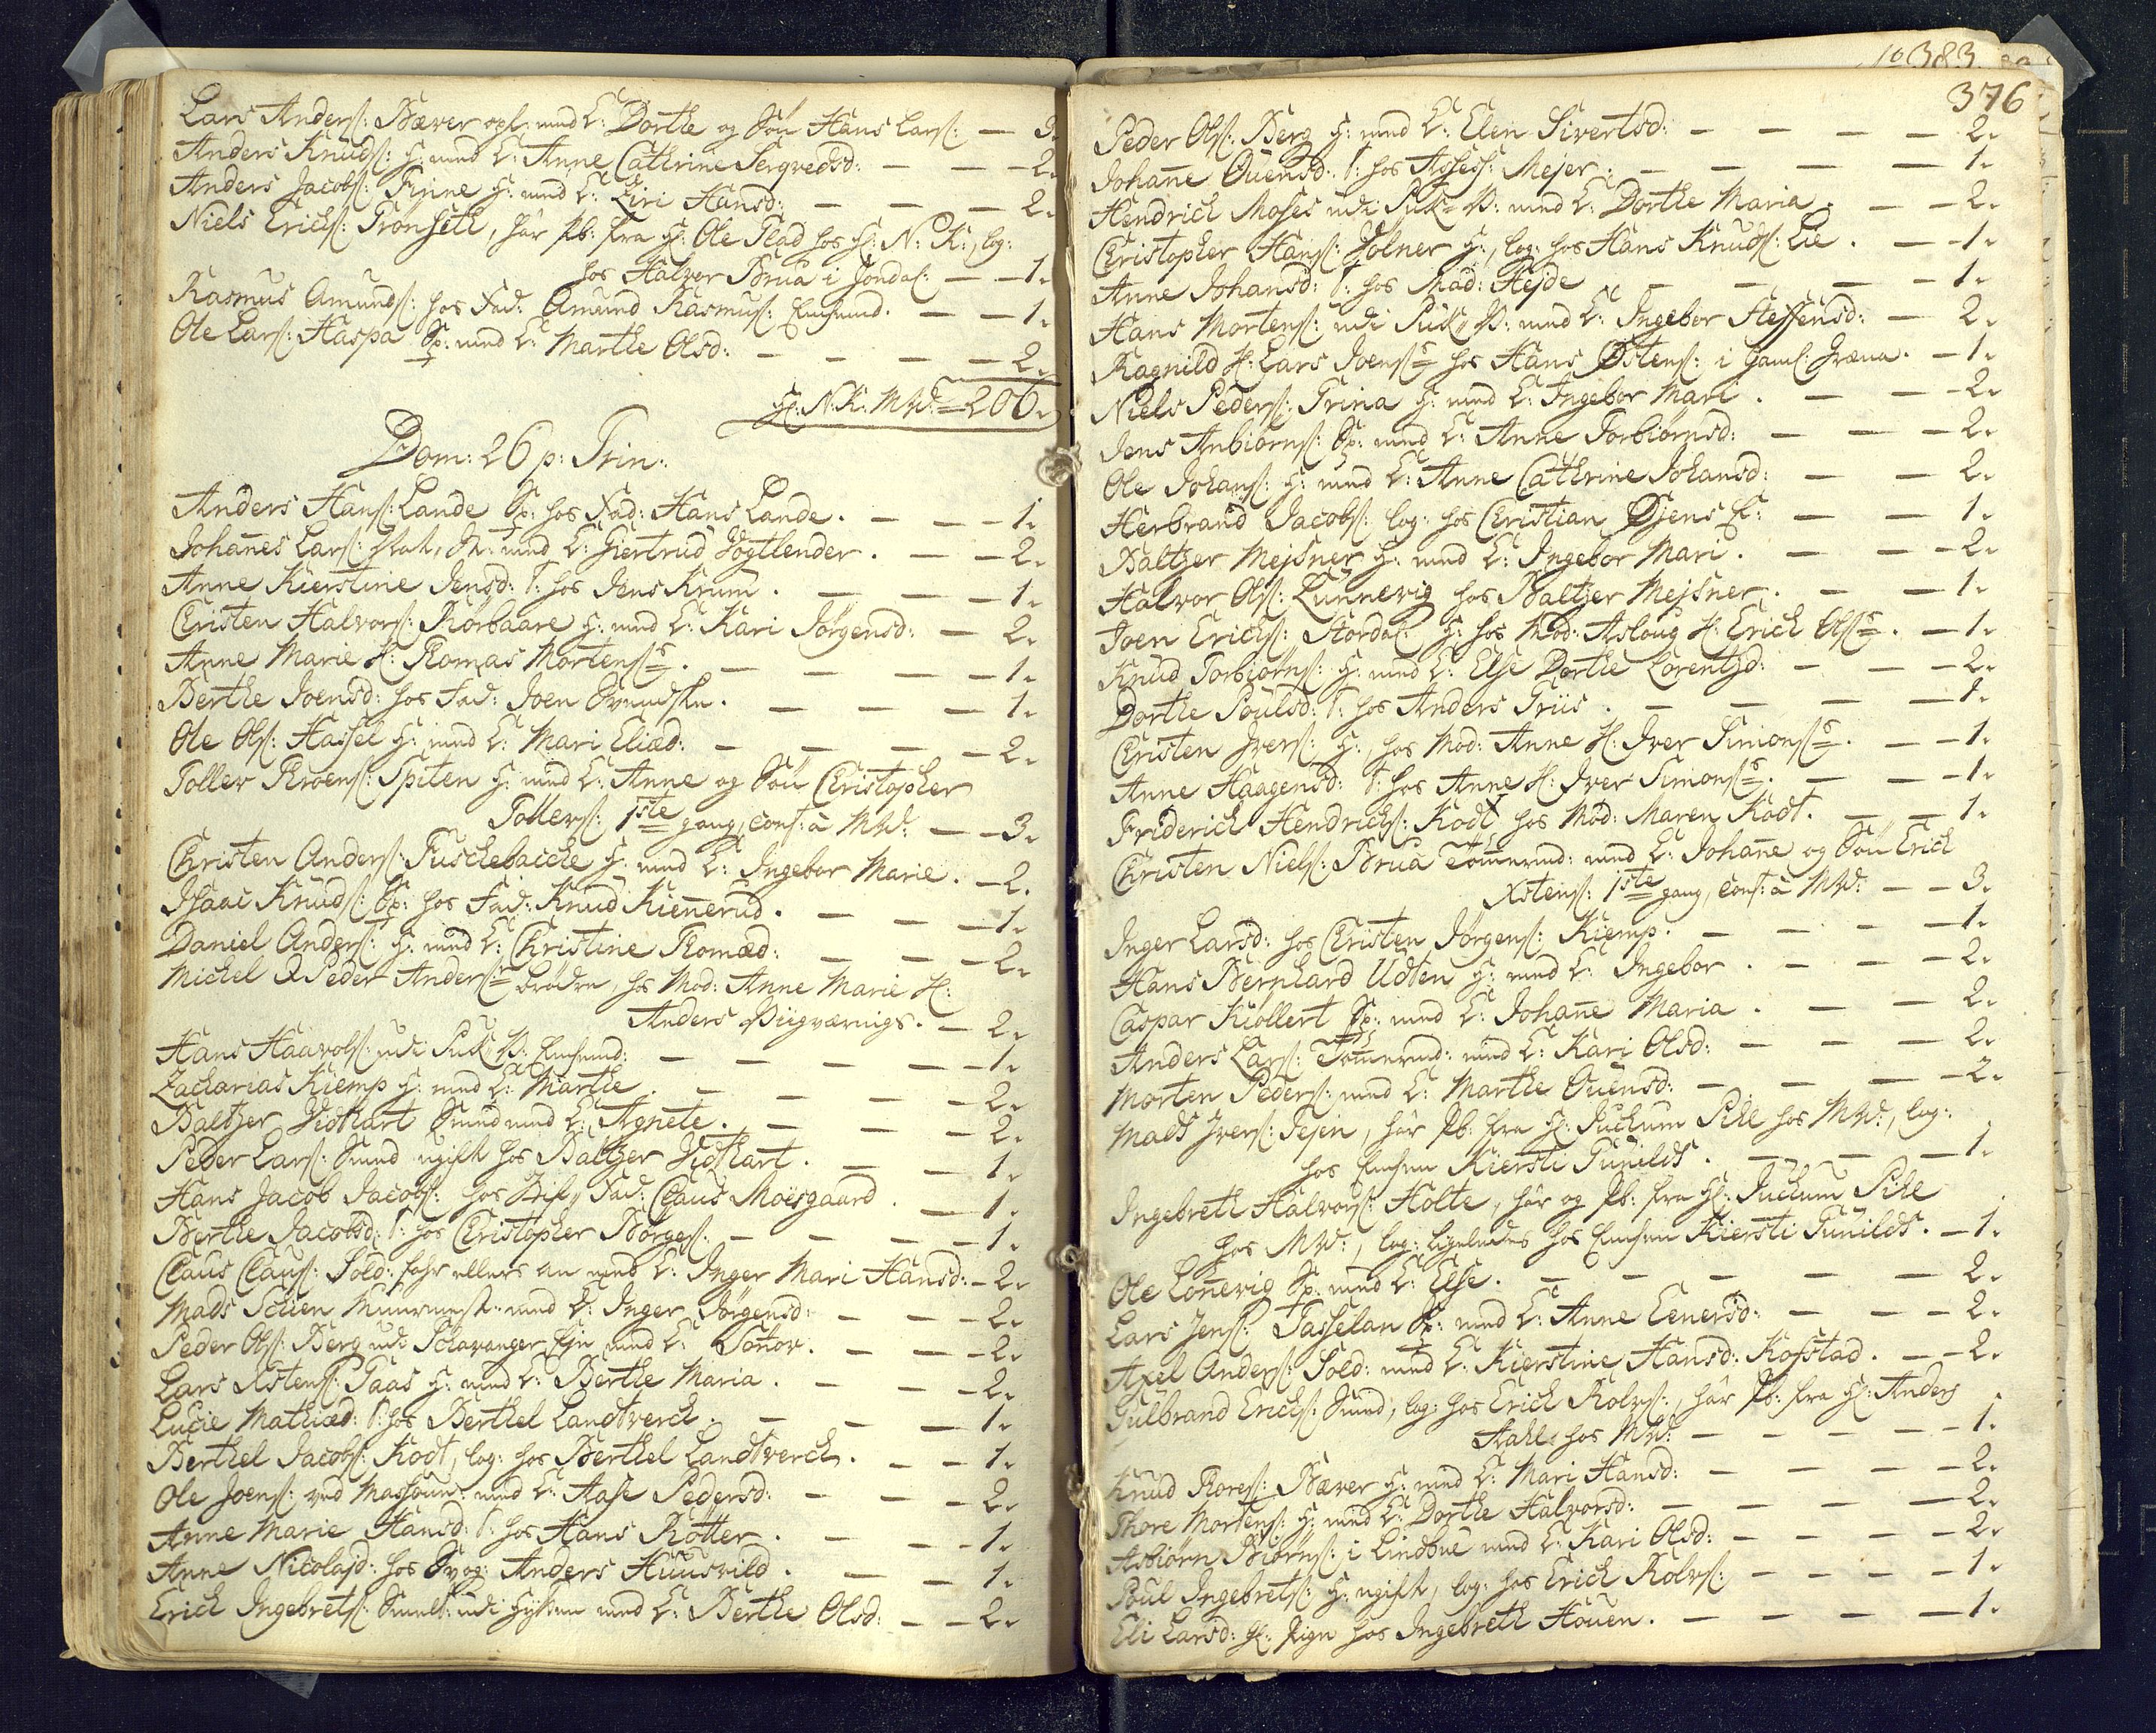 Lars Anders: Bæver opf: med E: Dorthe og Søn Hans Lars: — 3.
Anders Knuds: H: med E: Anne Cathrine Sergvedsd: — — 2.
Anders Jacobs: Fynne H: med E: Siri Hansd: — — — 2.
Niels Erichs: Tronseth, har Pb: fra Hr: Ole Flad hos Hr: N: K:, log:
hos Halvor Brua i Jondal: — — 1.
Rasmus Amunds: hos Fad: Amund Rasmus: — — 1.
Ole Lars: Haspa Sp: med E: Marthe Olsd: — — — — 2.
Hr: N: K: MWd: = 206.
Dom: 26 p: Trin:
Anders Hans: Lande Sp: hos Fad: Hans Lande. — — — 1.
Johannes Lars: med E: Giertrud Vogtlender. — — 2.
Anne Kierstine Jensd: T: hos Jens Krum. — — — 1.
Christen Halvors: Korbaare H: med E: Kari Jörgensd: — 2.
Anne Marie H: Tomas Mortens: — — — — 1.
Berthe Joensd: hos Fad: Joen — — — 1.
Ole Ols: Hassel H: med E: Mari Eliæd: — — — — 2.
Tollev Troens: Spiten H: med E: Anne og Søn Christopher
Tollevs: 1ste gang, conf: a MWd: — — 3.
Christen Anders: Fuschebache H: med E: Ingebor Marie. — 2.
Isaac Knuds: Sp: hos Fad: Knud Kiennerud. — — — 1.
Daniel Anders: H: med E: Christine Tomæd: — — — 2.
Michel & Peder Anders: brødre, hos Mod: Anne Marie H:
Anders Viigværnigs. — 2.
Hans Haavols: udi Puk. V: — — — — 1.
Zacharias Kiemp H: med E: Marthe. — — — — 2.
Baltzer Vidthart Smed med E: Agnete. — — — — 2.
Peder Lars: Smed ugift hos Baltzer Vidthart. — — — 1.
Hans Jacob Jacobs: hos Stif„ Fad: Claus Moisgaard. — 1.
Berthe Jacobsd: T: hos Christopher Börges: — — — — 1.
Claus Claus: Sold: med E: Inger Mari Hansd: — 2.
Mads Scheen Muurmest: med E: Inger Jörgensd: — — — 2.
Peder Ols: Berg udi Schavanger med E: Tonor. — — — 2.
Lars Xstens: Taas H: med E: Berthe Maria. — — — 2.
Lucie Mathiæd: T: hos Berthel Landtverch. — — — 1.
Berthel Jacobs: Kodt, log: hos Berthel Landtverch. — — 1.
Ole Joens: ved med E: Aase Pedersd: — — — 2.
Anne Marie Hansd: T: hos Hans Rotter. — — — 1.
Anne Nicolajd: hos Svog: Anders Huusvild. — — 1.
Erich Ingebrets: Smelt: udi Hytten med E: Berthe Olsd: — — 2.
383
376
Peder Ols: Berg H: med E: Elen Sivertsd: — — — — 2.
Johanne Ouensd: T: hos Assess: Mejer. — — — — 1.
Hendrich Moses udi Puk„ V: med E: Dorthe Maria. — — 2.
Christopher Hans: Volner H:, log: hos Hans Knuds: Lie. — — 1.
Anne Johansd: T: hos Mad: Hejde — — — — 1.
Hans Mortens: udi Puk„ V: med E: Ingebor Steffensd: — 2.
Ragnild H: Lars Joens: hos Hans Östens: i Gaml: — 1.
Niels Peders: Trina H: med E: Ingebor Mari. — — — 2.
Jens Anbiörns: Sp: med E: Anne Torbiörnsd: — — — 2.
Ole Johans: H: med E: Anne Cathrine Johansd: — — 2.
Herbrand Jacobs: log: hos Christian Öjens E: — — 1.
Baltzer Mejsner H: med E: Ingebor Mari. — — — 2.
Halvor Ols: Lunnevig hos Baltzer Mejsner. — — — 1.
Joen Erichs: Stordal: H: hos Mod: Asloug H: Erich Ols:. — 1.
Knud Torbiörns: H: med E: Else Dorthe Lorentzd: — — — 2.
Dorthe Poulsd: T: hos Anders Friis. — — — — 1.
Christen Ivers: H: hos Mod: Anne H: Iver Simons: — — 1.
Anne Haagensd: T: hos Anne H: Iver Simons: — — — 1.
Friderich Hendrichs: Kodt hos Mod: Maren Kodt. — — 1.
Christen Niels: Brua Tömmermd: med E: Johanne og Søn Erich
Xstens: 1ste gang, conf: a MWd: — — 3.
Inger Larsd: hos Christen Jörgens: Kiemp. — — — — 1.
Hans Bernhard Udten H: med E: Ingebor. — — — 2.
Caspar Kiöllert Sp: med E: Johanne Maria. — — 2.
Anders Lars: Tömmermd: med E: Kari Olsd: — — — 2.
Morten Peders: med E: Marthe Ouensd: — — — — 2.
Mads Ivers: Tejen, har Pb: fra Hr: Juchum Pihl hos MWd:, log:
hos Enchen Kiersti Gunilds. — — — — 1.
Ingebreth Halvors: Holte, har og Pb: fra Hr: Juchum Pihl
hos MWd:, log: ligeledes hos Enchen Kiersti Gunilds. — 1.
Ole Lonnevig Sp: med E: Else. — — — — — 2.
Lars Jens: Tasselan Sp: med E: Anne Eenersd: — — — 2.
Axel Anders: Sold: med E: Kierstine Hansd: Kofstad. — — 2.
Gulbrand Erichs: Smed, log: hos Erich Kolvs:, har Pb: fra Hr: Anders
Stahl hos MWd: — — — — — 1.
Knud Tores: Bæver H: med E: Mari Hansd: — — — — 2.
Thore Mortens: H: med E: Dorthe Halvorsd: — — — — 2.
Asbiörn Biörns: i Lindbue med E: Kari Olsd: — — — — 2.
Poul Ingebrets: H: ugift, log: hos Erich Kolvs: — — — — 1.
Eli Larsd: gl: Pige hos Ingebreth Houen. — — — — 1.